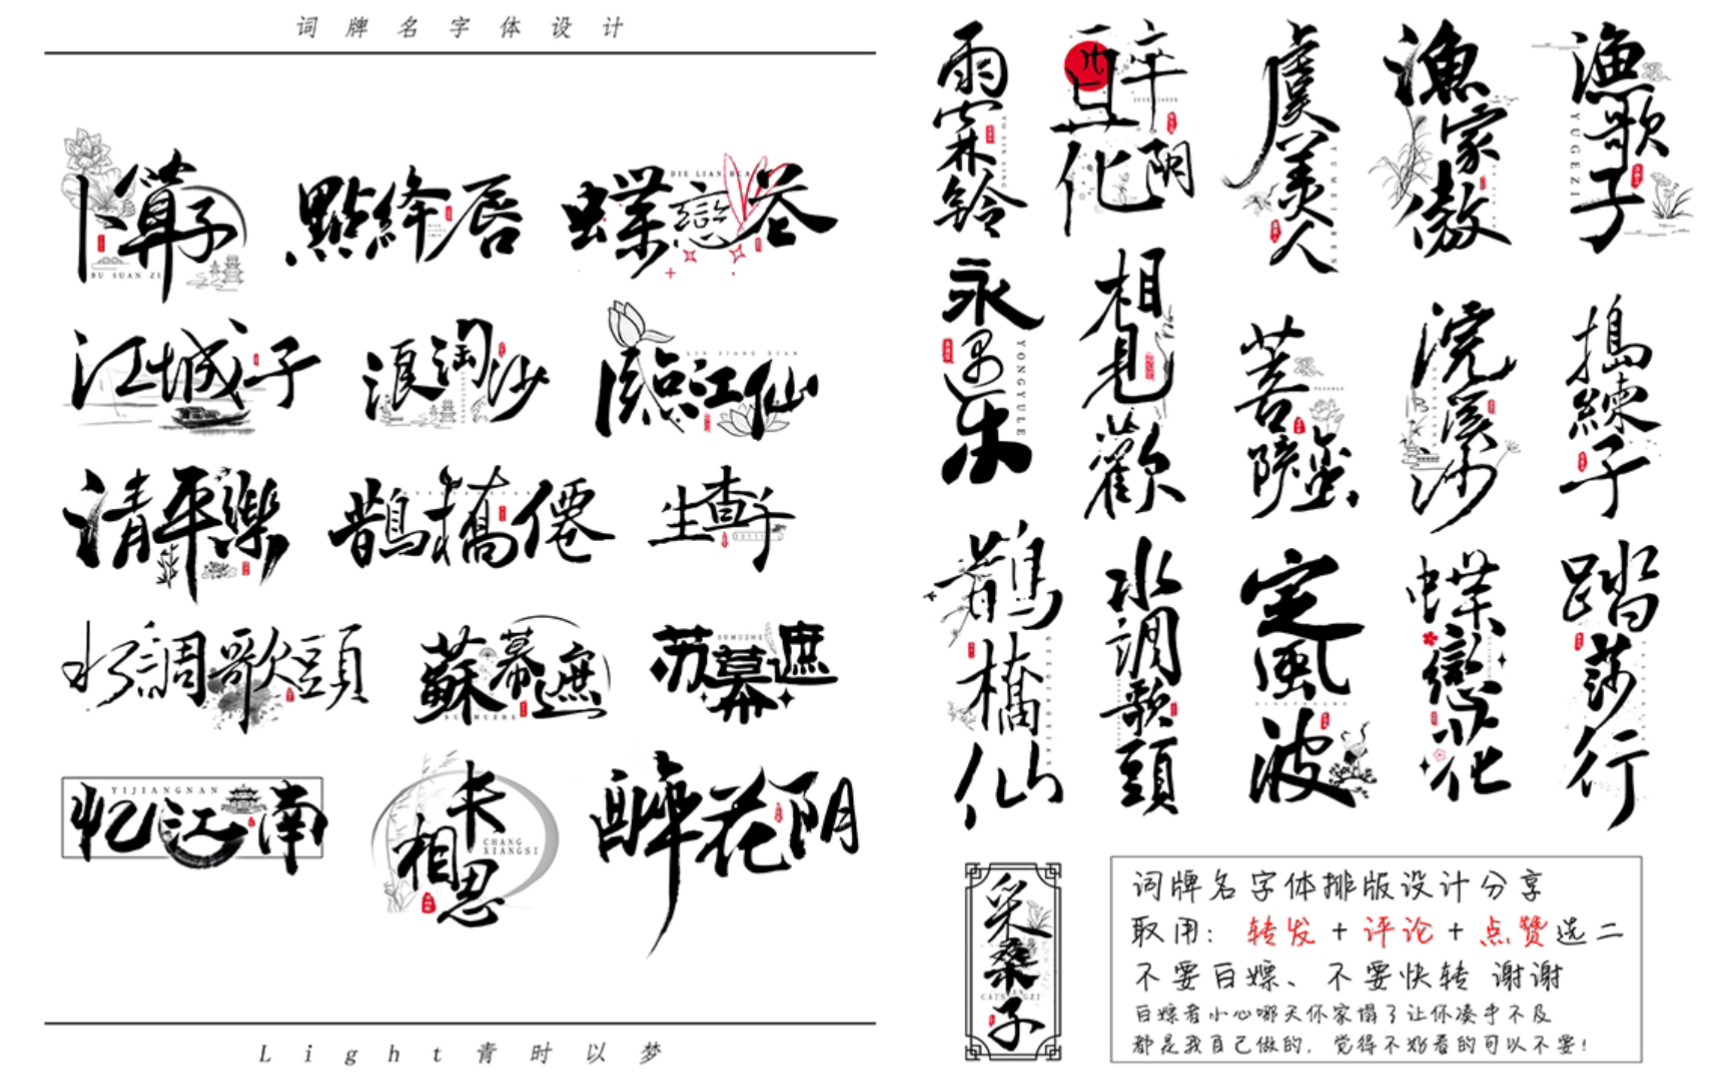 词牌名字体设计
卜算子
BU SUAN ZI
點絳唇
蝶戀花
DIE LIAN HUA
江城子
浪淘沙
臨江仙
LIN JIANG XIAN
清平樂
鵲橋僊
生查子
水調歌頭
蘇幕遮
SUMUZHE
苏幕遮
SUMUZHE
忆江南
YIJIANGNAN
长相思
CHANG
XIANGSI
醉花阴
Light青时以梦
雨霖铃
醉花阴
虞美人
YUMEIREN
漁家傲
漁歌子
YUGEZI
永遇乐
YONGYULE
相見歡
菩薩蛮
浣溪沙
搗練子
鵲橋仙
水調歌頭
定風波
蝶戀花
踏莎行
采桑子
词牌名字体排版设计分享
取用：转发+评论+点赞选二
不要白嫖、不要快转 谢谢
白嫖者小心哪天你家塌了让你凑手不及
都是我自己做的，觉得不好看的可以不要！